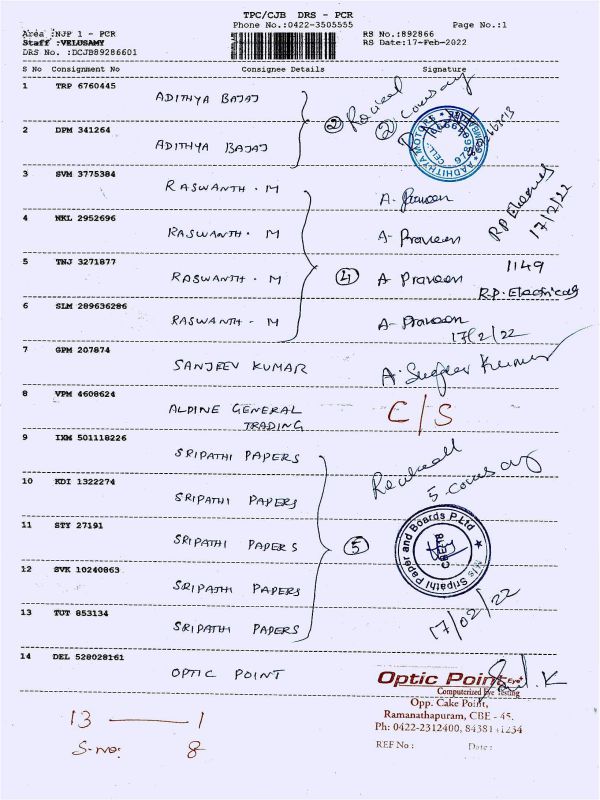 TPC/CJB DRS - PCR
Phone No.:0422-3505555
Page No.:1
Area :NJP 1 - PCR
Staff :VELUSAMY
DRS No. :DCJB89286601
RS No.:892866
RS Date:17-Feb-2022
S No Consignment No Consignee Details Signature
1 TRP 6760445 ADITHYA BAJAJ
2
2 DPM 341264 ADITHYA BAJAJ
AADHITHYA MOTORS
CELL
3 SVM 3775384 RASWANTH . M
4 NKL 2952696 RASWANTH . M A- Praveen
17/2/22
5 TNJ 3271877 RASWANTH . M 4 A Praveen
1149
R.P. Electricals
6 SLM 289636286 RASWANTH . M A- Praveen
17/2/22
7 GPM 207874 SANJEEV KUMAR
8 VPM 4608624 ALPINE GENERAL TRADING C/S
9 IXM 501118226 SRIPATHI PAPERS
10 KDI 1322274 SRIPATHI PAPERS
11 STY 27191 SRIPATHI PAPERS 5
M/s Sripathi Paper and Boards P.Ltd
CBE
12 SVK 10240863 SRIPATHI PAPERS
13 TUT 853134 SRIPATHI PAPERS
17/02/22
14 DEL 528028161 OPTIC POINT
Optic Point
Computerized Eye Testing
Opp. Cake Point,
Ramanathapuram, CBE - 45.
Ph: 0422-2312400,
REF No : Date :
13 — 1
S.no: 8